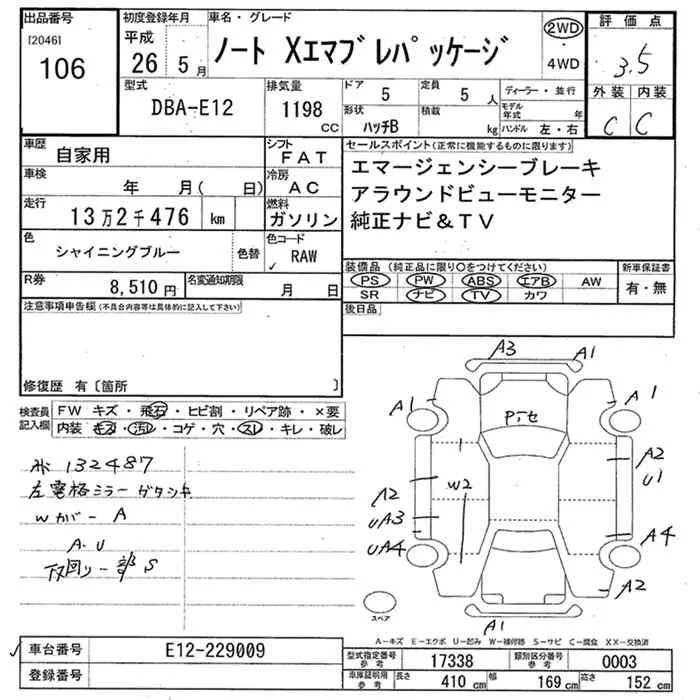 出品番号 初度登録年月 車名・グレード 評価点
[2046] 106
平成 26 5月
ノート Xエマブレパッケージ
2WD
4WD
3.5
型式 排気量 ドア 5 定員 5人 ディーラー・並行 外装 内装
DBA-E12 1198 CC
形状 ハッチB 積載 kg モデル年式 年
ハンドル 左・右
C C
車歴 自家用 シフト FAT
セールスポイント(正常に機能するものに限ります)
車検 年 月( 日) 冷房 AC
エマージェンシーブレーキ
アラウンドビューモニター
純正ナビ&TV
走行 13万2千476 km 燃料 ガソリン
色 シャイニングブルー 色替 色コード RAW
装備品 (純正品に限り○をつけてください) 新車保証書
PS PW ABS エアB AW 有・無
SR ナビ TV カワ
R券 8,510円 名変通知期限 月 日
後日品
注意事項申告欄(不具合内容等は具体的に記入して下さい)
修復歴 有〔箇所 〕
検査員記入欄
FW キズ・飛石・ヒビ割・リペア跡・×要
内装 キズ・汚レ・コゲ・穴・スレ・キレ・破レ
132487
左電格ミラーガタシキ
Wカバー A
A.U
下回り一部S
A3 A1
A1 A1
Pイセ
A2
U1
W2
A2
UA3
UA4
A4
A2
A1
スペア
A-キズ E-エクボ U-凹み W-補修跡 S-サビ C-腐食 XX-交換済
車台番号 E12-229009
登録番号
型式指定番号 参考 17338 類別区分番号 参考 0003
車庫証明用 参考 長さ 410cm 幅 169cm 高さ 152cm